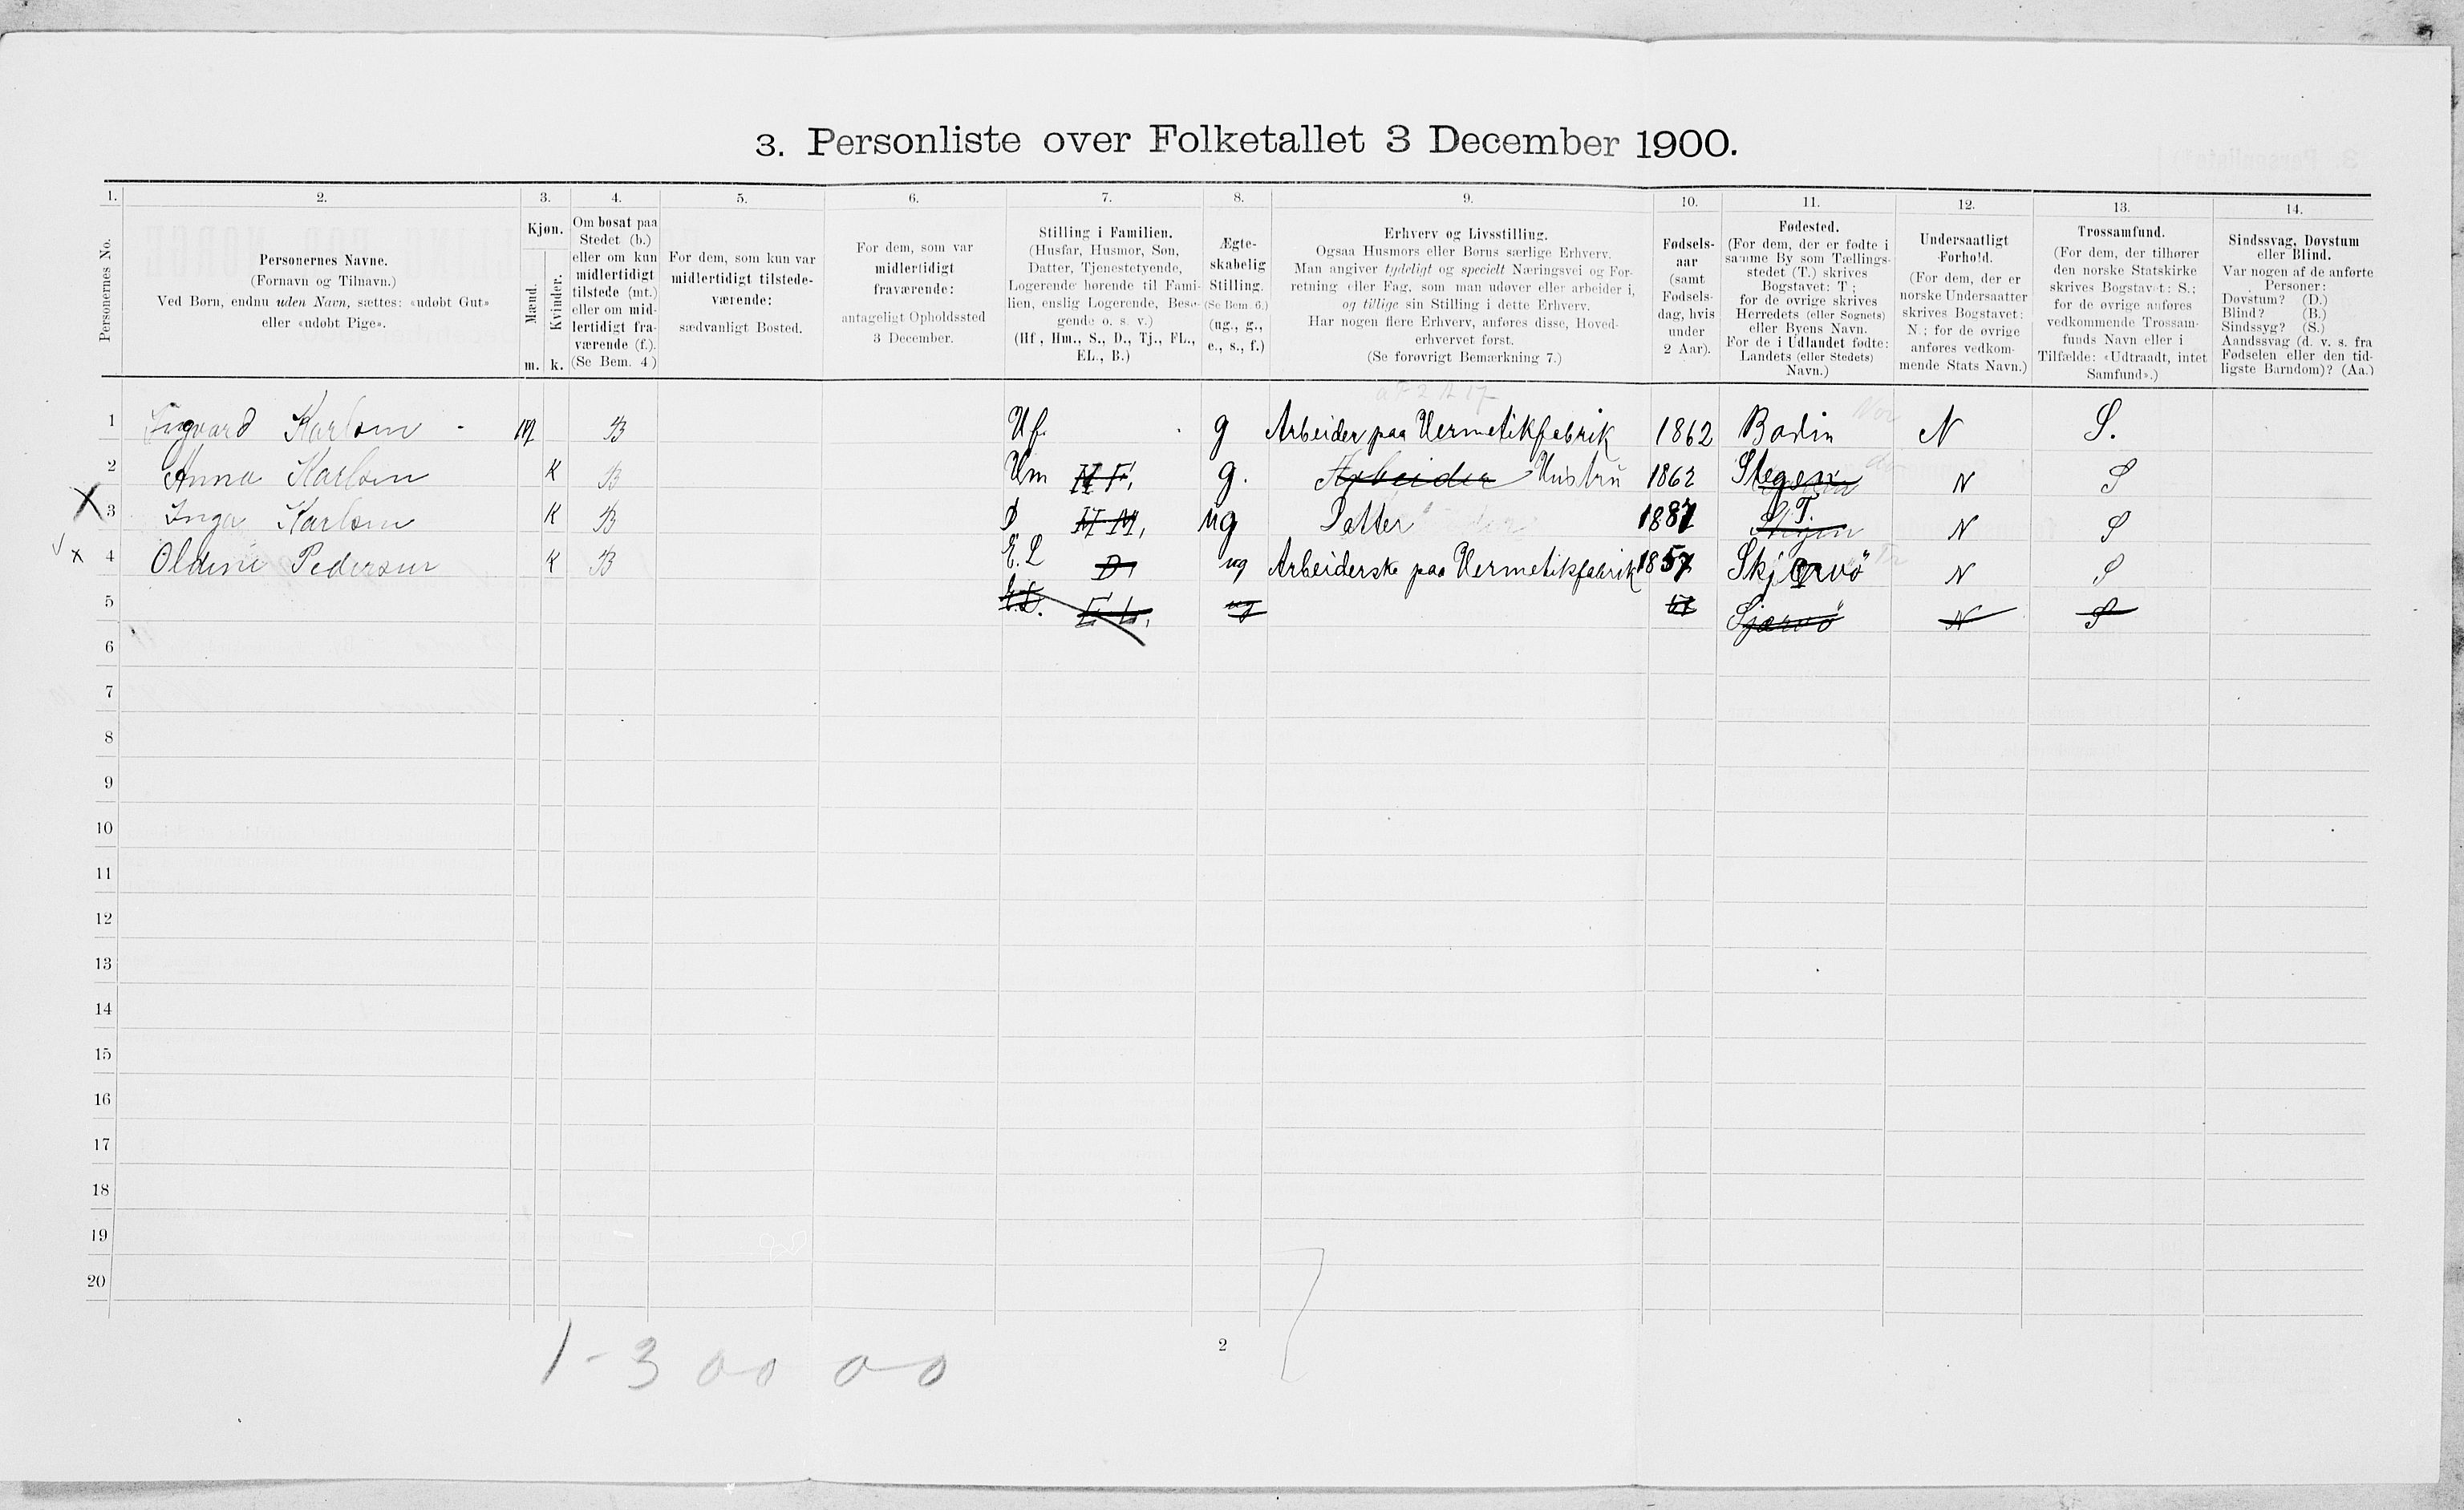 3. Personliste over Folketallet 3 December 1900.
1. 2. 3. 4. 5. 6. 7. 8. 9. 10. 11. 12. 13. 14.
Personernes No.
Personernes Navne.
(Fornavn og Tilnavn.)
Ved Børn, endnu uden Navn, sættes: «udøbt Gut»
eller «udøbt Pige».
Kjøn.
Mænd.
Kvinder.
m. k.
Om bosat paa
Stedet (b.)
eller om kun
midlertidigt
tilstede (mt.)
eller om mid-
lertidigt fra-
værende (f.).
(Se Bem. 4)
For dem, som kun var
midlertidigt tilstede-
værende:
sædvanligt Bosted.
For dem, som var
midlertidigt
fraværende:
antageligt Opholdssted
3 December.
Stilling i Familien.
(Husfar, Husmor, Søn,
Datter, Tjenestetyende,
Logerende hørende til Fami-
lien, enslig Logerende, Besø-
gende o. s. v.)
(Hf., Hm., S., D., Tj., FL.,
EL., B.)
Ægte-
skabelig
Stilling.
(Se Bem. 6.)
(ug., g.,
e., s., f.)
Erhverv og Livsstilling.
Ogsaa Husmors eller Børns særlige Erhverv.
Man angiver tydeligt og specielt Næringsvei og For-
retning eller Fag, som man udøver eller arbeider i,
og tillige sin Stilling i dette Erhverv.
Har nogen flere Erhverv, anføres disse, Hoved-
erhvervet først.
(Se forøvrigt Bemærkning 7.)
Fødsels-
aar
(samt
Fødsels-
dag, hvis
under
2 Aar).
Fødested.
(For dem, der er fødte i
samme By som Tællings-
stedet (T.) skrives
Bogstavet: T;
for de øvrige skrives
Herredets (eller Sognets)
eller Byens Navn.
For de i Udlandet fødte:
Landets (eller Stedets)
Navn.)
Undersaatligt
Forhold.
(For dem, der er
norske Undersaatter
skrives Bogstavet:
N.; for de øvrige
anføres vedkom-
mende Stats Navn.)
Trossamfund.
(For dem, der tilhører
den norske Statskirke
skrives Bogstavet: S.;
for de øvrige anføres
vedkommende Trossam-
funds Navn eller i
Tilfælde: «Udtraadt, intet
Samfund».)
Sindssvag, Døvstum
eller Blind.
Var nogen af de anførte
Personer:
Døvstum? (D.)
Blind? (B.)
Sindssyg? (S.)
Aandssvag (d. v. s. fra
Fødselen eller den tid-
ligste Barndom)? (Aa.)
1 Ingvard Karlsen m B Hf. g Arbeider paa Hermetikfabrik 1862 Bodin N S.
2 Anna Karlsen K B Hm H F. g. Arbeider Hustru 1862 Stegen N S
X 3 Inga Karlsen K B D H M. ug Datter 1887 T. N S
x 4 Oldine Pedersen K B E.L D. ug Arbeiderske paa Hermetikfabrik 1857 Skjærvö N S
5 E.L. E L. ug 57 Sjærvö N S
6
7
8
9
10
11
12
13
14
15
16
17
18
19
20
1 - 3 00 00
2